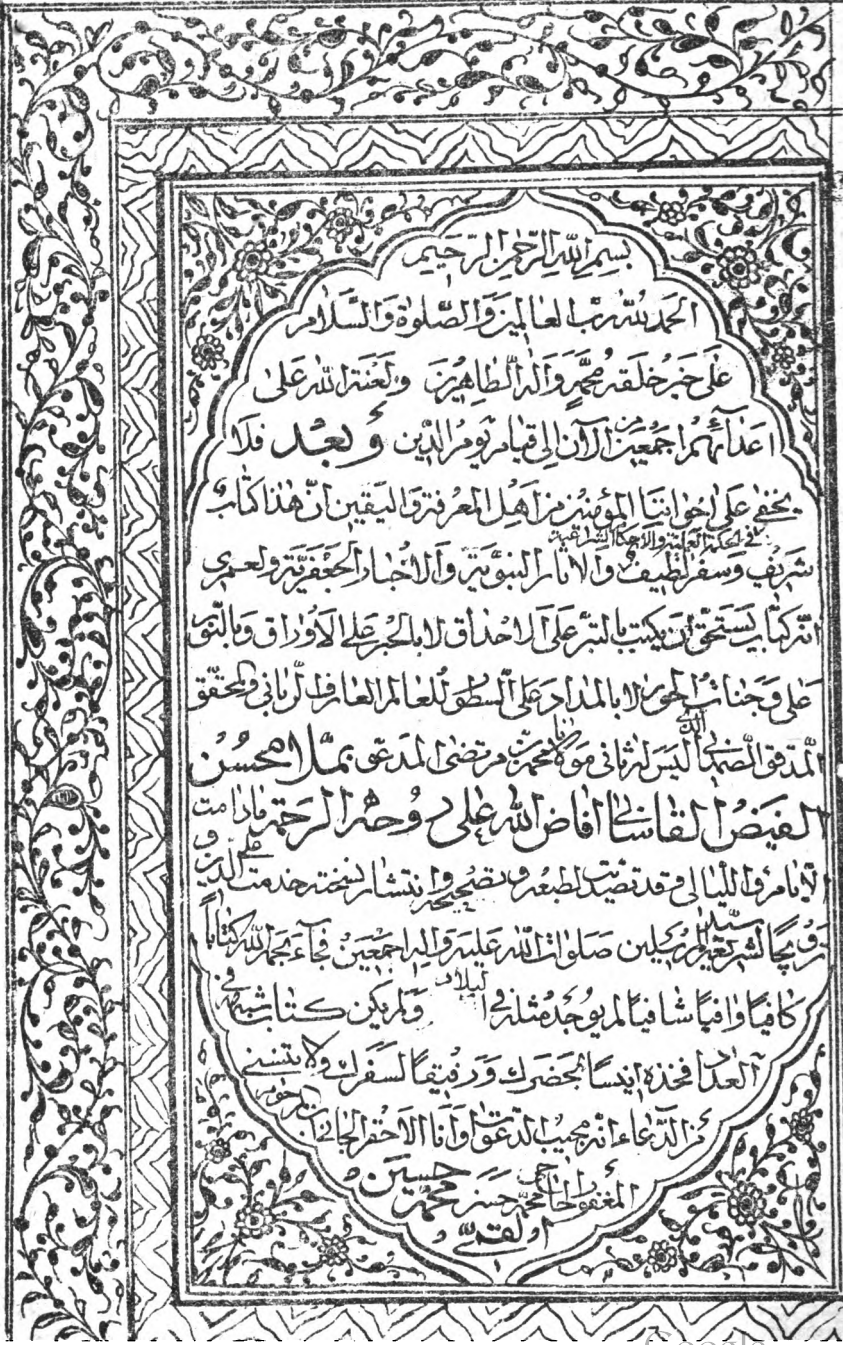 بسم الله الرحمن الرحیم
الحمد لله رب العالمین والصلوة والسلام
علی خیر خلقه محمد وآله الطاهرین ولعنة الله علی
اعدآئهم اجمعین من الآن الی قیام یوم الدین وبعد فلا
یخفی علی اخواننا المؤمنین من اهل المعرفة والیقین ان هذا کتاب
فی الحکمة العملیة والاحکام الشرعیة
شریف وسفر لطیف والاثار النبویة والاخبار الجعفریة ولعمری
انه کتاب یستحق ان یکتب بالتبر علی الاحداق لا بالحبر علی الاوراق وبالنور
علی وجنات الحور لا بالمداد علی السطور للعالم العارف الربانی والمحقق
المدقق الصمدانی الذی لیس له ثانی مولانا محمد بن مرتضی المدعو بملا محسن
الفیض القاسانی افاض الله علی روحه الرحمة مادامت
الایام واللیالی وقد تصدیت لطبعه وتصحیحه وانتشار نسخته خدمة علی الدین و
ترویجا لشریعة سید المرسلین صلوات الله علیه وآله اجمعین فجآء بحمد الله کتاباً
کافیاً وافیاً شافیاً لم یوجد مثله فی البلاد ولم یکن کتاب شبهه فی
العداد فخذه انیساً لحضرک ورفیقاً لسفرک ولا تنسنی
من الدعاء انه مجیب الدعوات وانا الاحقر الجانی ابن المرحوم
المغفور الحاجی محمد حسن محمد حسین
القمی
Google